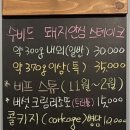 수비드 돼지안심 스테이크
약 300g 내외 (일반) 30,000
약 370g 이상 (특) 35,000
*비프 스튜 (11월~2월)
*버섯 크림리조또 (트러플) 15,
콜키지 (corkage) 병당 10,000